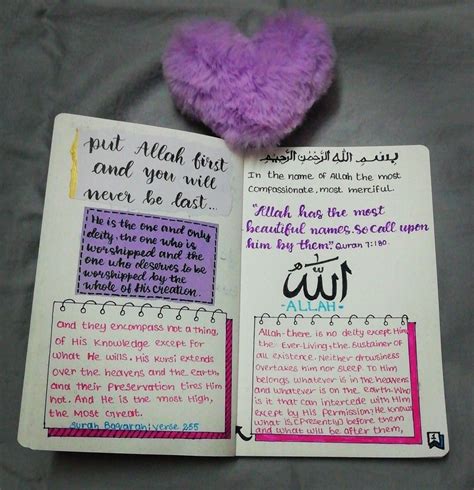 put Allah first
and you will
never be last...
He is the one and only
deity, the one who is
worshipped and the
one who deserves to be
worshipped by the
whole of His creation.
and they encompass not a thing
of His Knowledge except for
what He wills. His Kursi extends
over the heavens and the earth,
and their preservation tires Him
not. And He is the most High,
the Most Great.
Surah Baqarah: verse 255
بِسْمِ اللّٰهِ الرَّحْمٰنِ الرَّحِيْمِ
In the name of Allah the most
compassionate, most merciful.
"Allah has the most
beautiful names. So call upon
him by them." Quran 7:180.
اللّٰه
-ALLAH-
Allah - there is no deity except Him,
the Ever-Living, the Sustainer of
all existence. Neither drowsiness
overtakes him nor sleep. To Him
belongs whatever is in the heavens
and whatever is on the earth. Who
is it that can intercede with Him
except by His permission, He knows
what is (Presently) before them
and what will be after them,